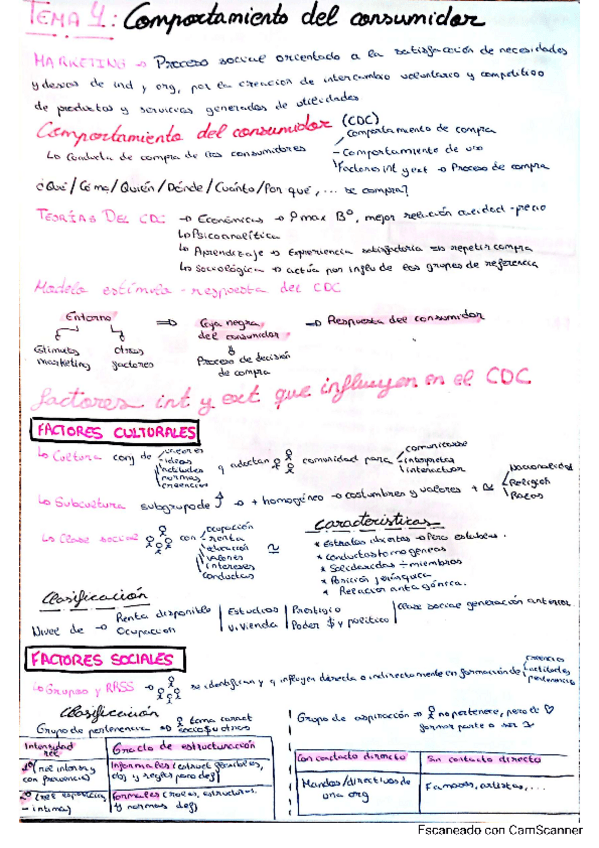 TEMA 4: Comportamiento del consumidor
MARKETING → Proceso social orientado a la satisfacción de necesidades
y deseos de ind y org, por la creación de intercambio voluntario y competitivo
de productos y servicios generados de utilidades
Comportamiento del consumidor (CDC)
↳ Conducta de compra de los consumidores
Comportamiento de compra
Comportamiento de uso
Factores int y ext → Proceso de compra
¿Qué/Cómo/Quién/Dónde/Cuánto/Por qué,... se compra?
TEORÍAS DEL CDC → Económicas → max Bº, mejor relación calidad-precio
↳ Psicoanalítica
↳ Aprendizaje → Experiencia satisfactoria repetir compra
↳ Sociológica → actúa por influ de los grupos de referencia
Modelo estímulo-respuesta del CDC
Entorno ⇒ Caja negra del consumidor → Respuesta del consumidor
Estímulos marketing
otros factores
Proceso de decisión de compra
factores int y ext que influyen en el CDC
FACTORES CULTURALES
↳ Cultura conj de
valores
ideas
actitudes
normas
creencias
y adoctan comunidad para
comunicarse
interpretar
interactuar
↳ Subcultura subgrupo de ↑ → + homogéneo → costumbres y valores + ≅
Nacionalidad
Religión
Razas
↳ Clase social con
ocupación
renta
educación
valores
intereses
conductas
≅
Características
* Estratos abiertos → Pero estables.
* Conductas homogéneas
* Solidaridad ÷ miembros
* Posición jerárquica
* Relación antagónica.
Clasificación
Nivel de →
Renta disponible
Ocupación
Estudios
Vivienda
Prestigio
Poder $ y político
Clase social generación anterior
FACTORES SOCIALES
↳ Grupos y RRSS → se identifican y q influyen directa o indirectamente en formación de
creencias
actitudes
pertenencia
Clasificación
Grupo de pertenencia → toma carnet socios u otros
Grupo de aspiración → no pertenece, pero le ♡ formar parte o ser 1
Intensidad rel
Grado de estructuración
1º (rel intensa y con frecuencia)
Informales (estruct flexibles, obj y reglas poco def)
2º (rel esporádica, - íntima)
Formales (roles, estructuras, y normas def)
Con contacto directo
Sin contacto directo
Mandos/directivos de una org
Famosos, artistas,...
Escaneado con CamScanner